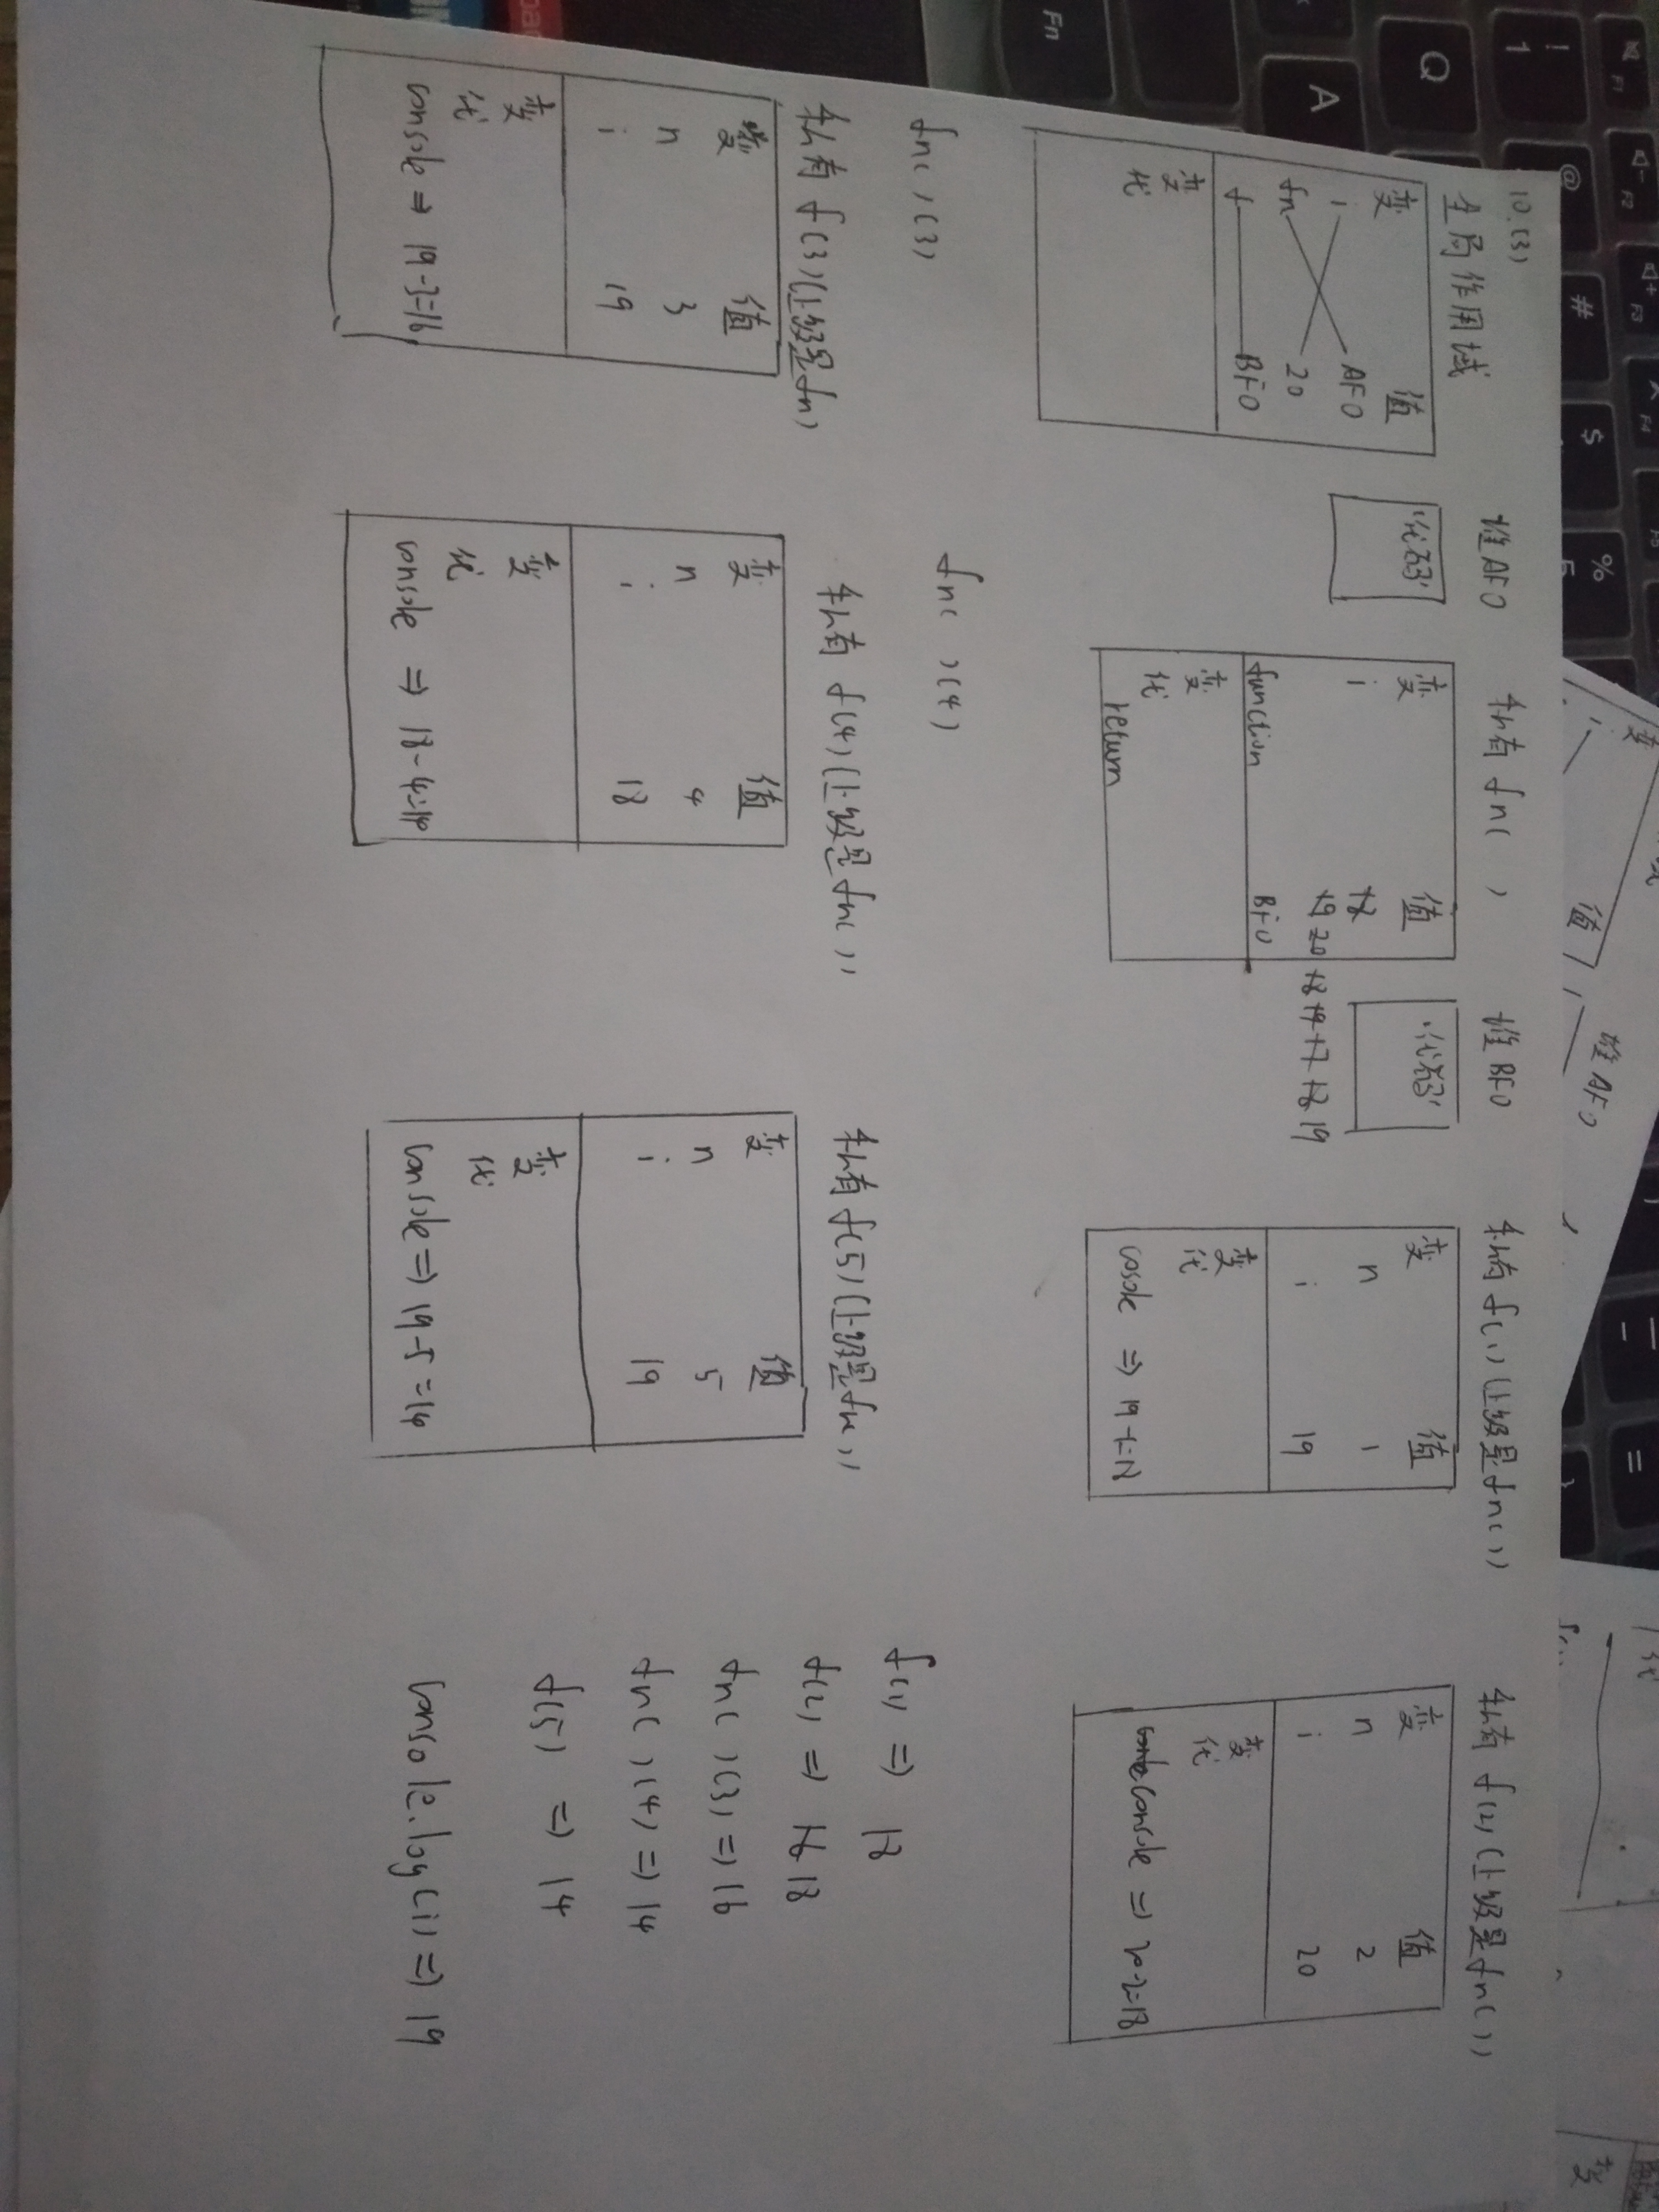 10.(3)
全局作用域
变 值
i AFO
fn 20
f BFO
变
代
堆AFO
'代码'
私有 fn( )
变 值
i 18
19 20 18 19 17 18 19
function BFO
变
代
return
堆BFO
'代码'
私有 f(1)(上级是fn())
变 值
n 1
i 19
变
代
cosole => 19-1=18
私有 f(2)(上级是fn())
变 值
n 2
i 20
变
代
console => 20-2=18
fn( )(3)
私有 f(3)(上级是fn)
变 值
n 3
i 19
变
代
console => 19-3=16
fn( )(4)
私有 f(4)(上级是fn( ))
变 值
n 4
i 18
变
代
console => 18-4=14
私有 f(5)(上级是fn())
变 值
n 5
i 19
变
代
console => 19-5=14
f(1) => 18
f(2) => 16 18
fn( )(3) => 16
fn( )(4) => 14
f(5) => 14
console.log(i) => 19
变
i
值
堆AFO
代
变
F1
F2
F3
F4
!
1
@
#
$
%
5
Q
A
Fn
=